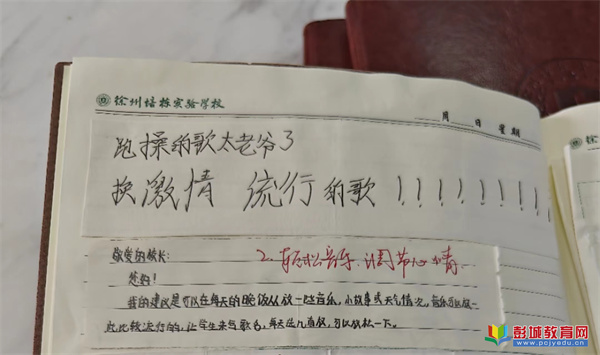 徐州培栋实验学校
月 日 星期
跑操的歌太老爷了
换激情 流行的歌 !!!!!!!!!
2、轻松音乐、调节心情
敬爱的校长:
您好!
我的建议是可以在每天的晚饭后放一些音乐,小故事或天气情况。音乐可以放一
些比较流行的,让学生来写歌名,每天选几首歌,可以放松一下。
彭城教育网
www.pcjyedu.cn